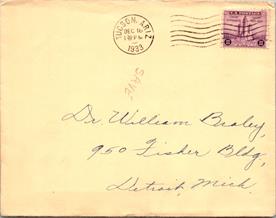 TUCSON, ARIZ.
DEC 16
1933
U.S. POSTAGE
3 3
SAVE
Dr. William Braley,
950 Fisher Bldg,
Detroit, Mich.